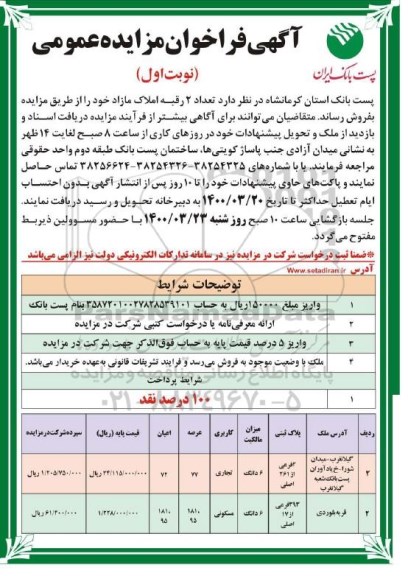 پست بانک ایران
آگهی فراخوان مزایده عمومی
(نوبت اول)
پست بانک استان کرمانشاه در نظر دارد تعداد ۲ رقبه املاک مازاد خود را از طریق مزایده
بفروش رساند. متقاضیان می‌توانند برای آگاهی بیشتر از فرآیند مزایده دریافت اسناد و
بازدید از ملک و تحویل پیشنهادات خود در روزهای کاری از ساعت ۸ صبح لغایت ۱۴ ظهر
به نشانی میدان آزادی جنب پاساژ کویتی‌ها، ساختمان پست بانک طبقه دوم واحد حقوقی
مراجعه فرمایند. یا با شماره‌های ۳۸۲۵۴۳۲۵-۳۸۲۵۴۳۲۶-۳۸۲۵۶۶۲۴ تماس حاصل
نمایند و پاکت‌های حاوی پیشنهادات خود را تا ۱۰ روز پس از انتشار آگهی بدون احتساب
ایام تعطیل حداکثر تا تاریخ ۱۴۰۰/۰۳/۲۰ به دبیرخانه تحویل و رسید دریافت نمایند.
جلسه بازگشایی ساعت ۱۰ صبح روز شنبه ۱۴۰۰/۰۳/۲۳ با حضور مسوولین ذیربط
مفتوح می‌گردد.
*ضمنا ثبت درخواست شرکت در مزایده نیز در سامانه تدارکات الکترونیکی دولت نیز الزامی می‌باشد
آدرس www.setadiran.ir
توضیحات شرایط
۱ واریز مبلغ ۱۵۰۰۰۰۰ریال به حساب ۳۵۸۷۲۰۱۰۰۲۷۸۲۸۵۳۹۱۰۱ بنام پست بانک
۲ ارائه معرفی‌نامه یا درخواست کتبی شرکت در مزایده
۳ واریز ۵ درصد قیمت پایه به حساب فوق‌الذکر جهت شرکت در مزایده
۴ ملک با وضعیت موجود به فروش می‌رسد و فرایند تشریفات قانونی به‌عهده خریدار می‌باشد.
شرایط پرداخت
۱ ۱۰۰ درصد نقد
ParsNamadData
پایگاه اطلاع رسانی مناقصه و مزایده
۰۲۱-۸۸۳۴۹۶۷۰-۵
ردیف آدرس ملک پلاک ثبتی میزان مالکیت کاربری عرصه اعیان قیمت پایه (ریال) سپرده شرکت در مزایده
۳ گیلانغرب-میدان شورا-خ یادآوران پست بانک شعبه گیلانغرب ۳فرعی از ۲۶۱ اصلی ۶ دانگ تجاری ۷۷ ۷۲ ۲۴/۱۱۵/۰۰۰/۰۰۰ ریال ۱/۲۰۵/۷۵۰/۰۰۰ ریال
۲ قریه‌هوردی ۳۹۳فرعی از ۱۷ اصلی ۶ دانگ مسکونی ۱۸۱٫۹۵ ۱۸۱٫۹۵ ۱/۲۲۸/۰۰۰/۰۰۰ ریال ۶۱/۴۰۰/۰۰۰ ریال